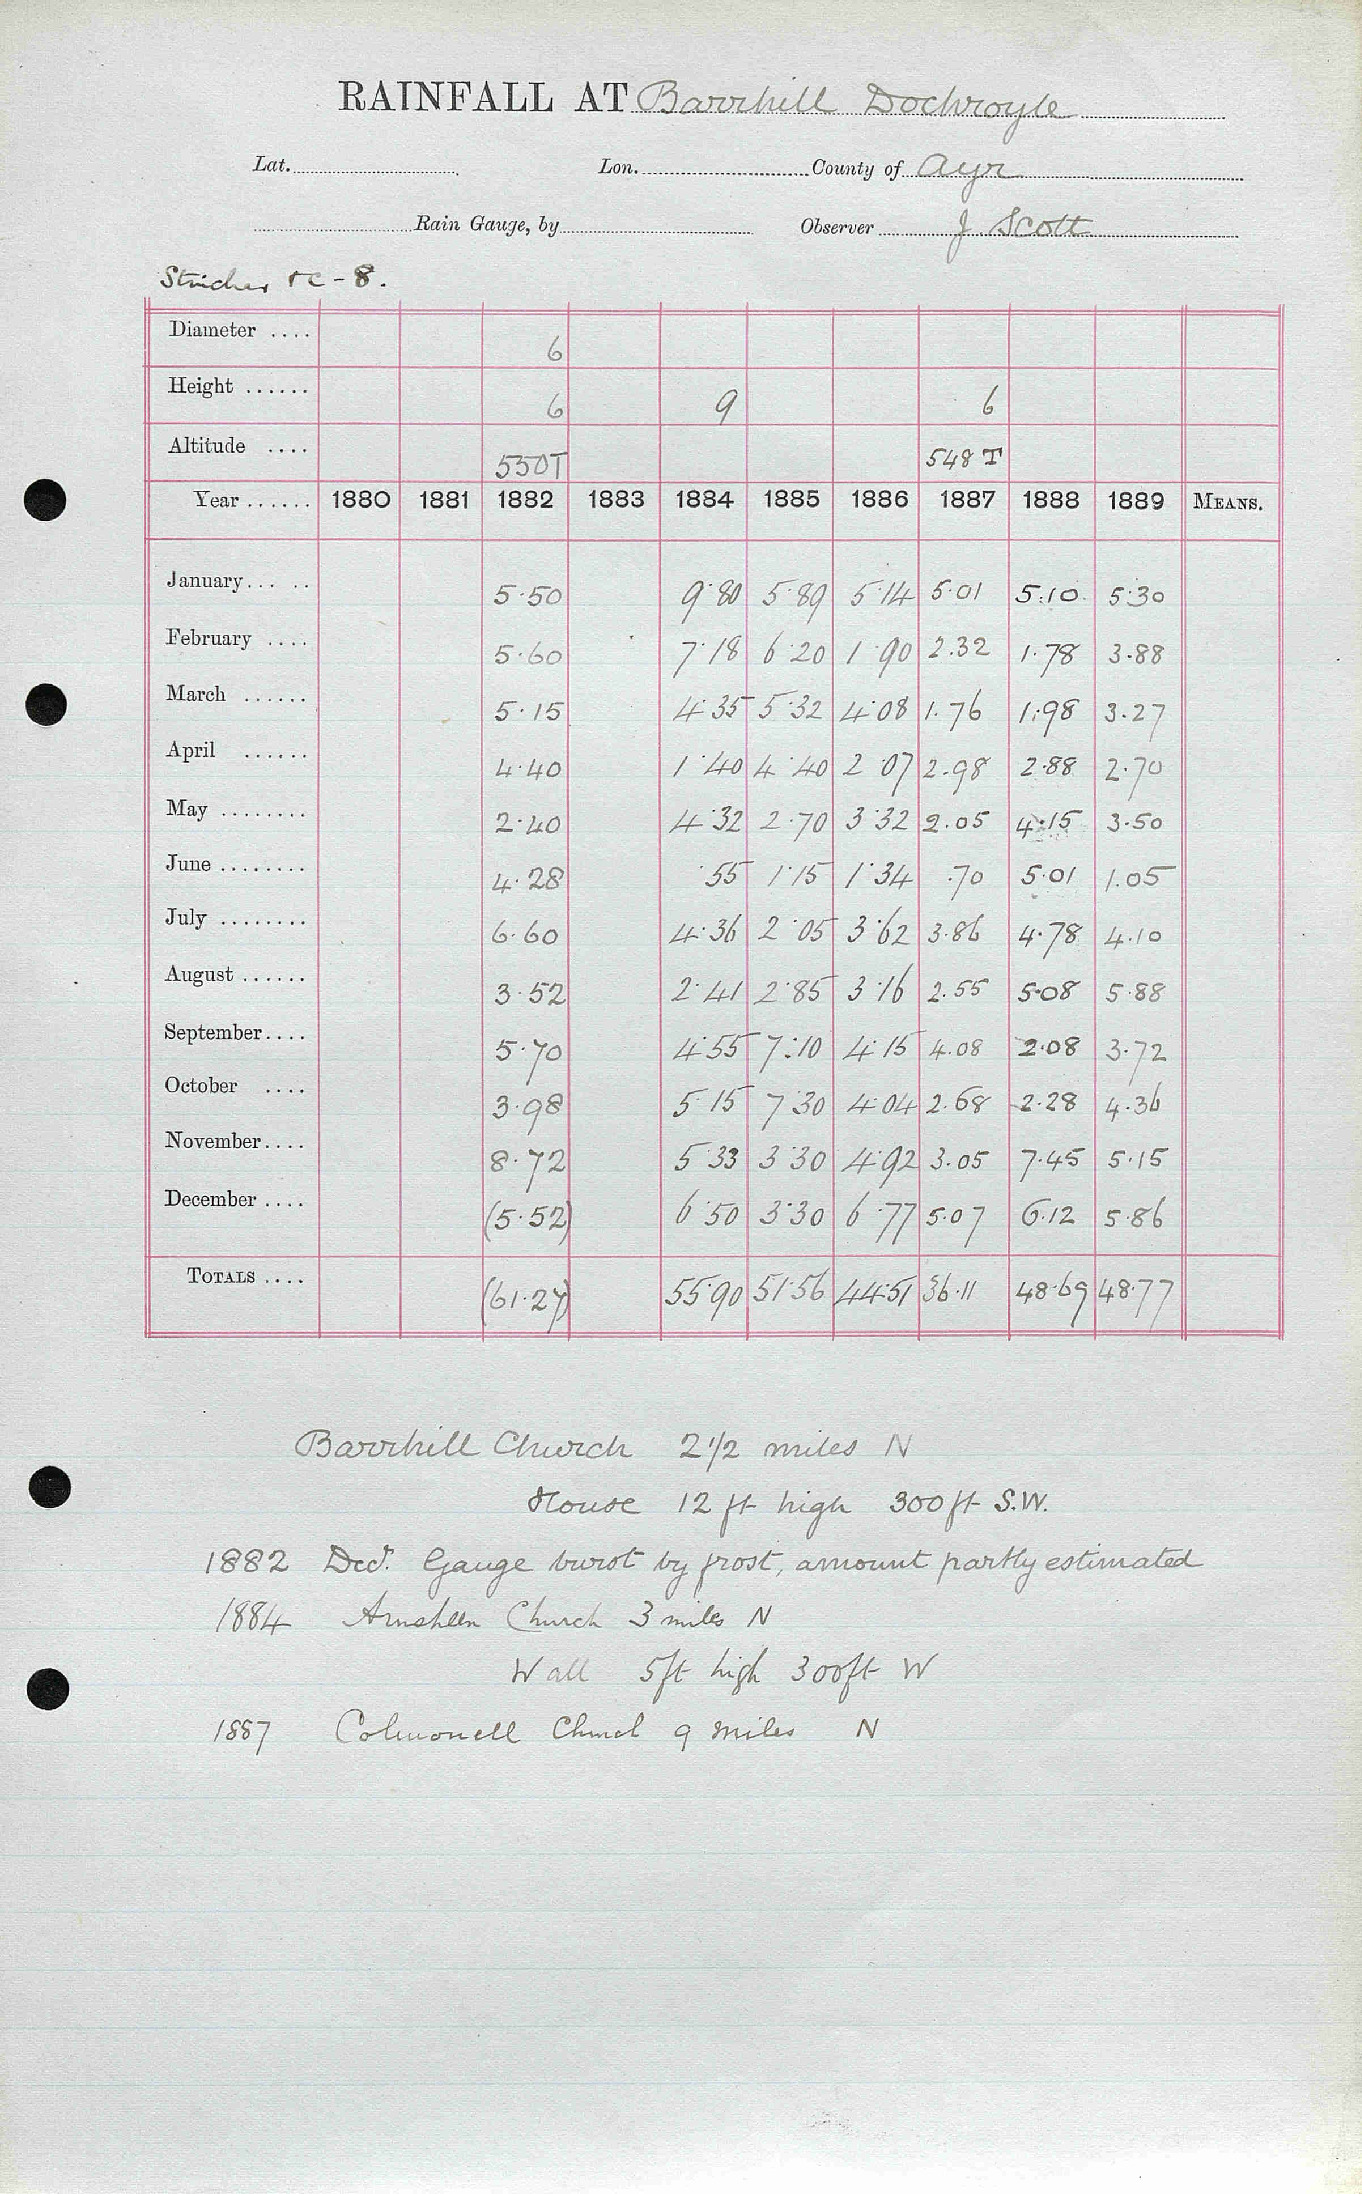 RAINFALL AT Barrhill Dochroyle
Lat. Lon. County of Ayr
Rain Gauge, by Observer J Scott
- 8.
Diameter .... 6
Height ...... 6 9 6
Altitude .... 550T 548 T
Year ...... 1880 1881 1882 1883 1884 1885 1886 1887 1888 1889 MEANS.
January... .. 5.50 9.80 5.89 5.14 5.01 5.10 5.30
February .... 5.60 7.18 6.20 1.90 2.32 1.78 3.88
March ...... 5.15 4.35 5.32 4.08 1.76 1.98 3.27
April ...... 4.40 1.40 4.40 2.07 2.98 2.88 2.70
May ........ 2.40 4.32 2.70 3.32 2.05 4.15 3.50
June ........ 4.28 .55 1.15 1.34 .70 5.01 1.05
July ........ 6.60 4.36 2.05 3.62 3.86 4.78 4.10
August ...... 3.52 2.41 2.85 3.16 2.55 5.08 5.88
September.... 5.70 4.55 7.10 4.15 4.08 2.08 3.72
October .... 3.98 5.15 7.30 4.04 2.68 2.28 4.36
November.... 8.72 5.33 3.30 4.92 3.05 7.45 5.15
December .... (5.52) 6.50 3.30 6.77 5.07 6.12 5.86
TOTALS .... (61.27) 55.90 51.56 44.51 36.11 48.69 48.77
Barrhill Church 2 1/2 miles N
House 12 ft high 300 ft S.W.
1882 Decr. Gauge burst by frost, amount partly estimated
1884 Arnsheen Church 3 miles N
Wall 5ft high 300ft W
1887 Colmonell Church 9 miles N